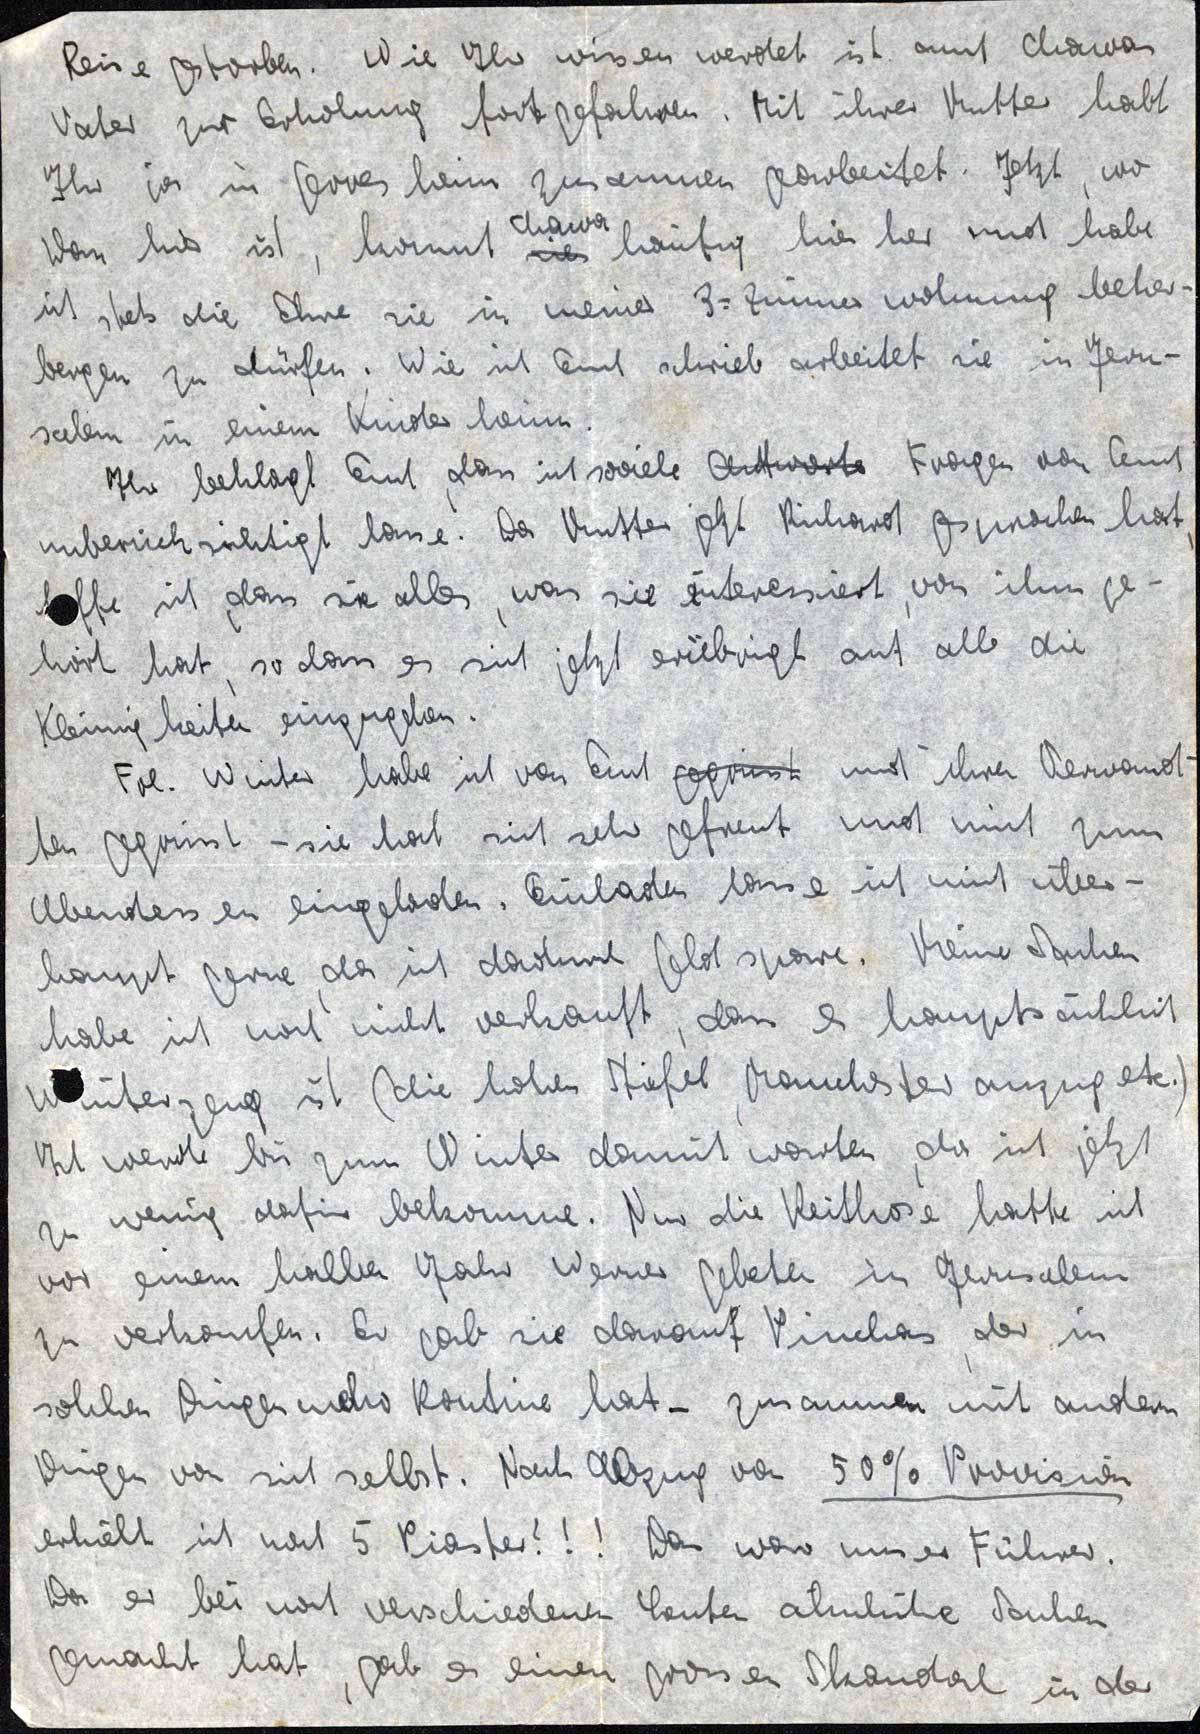 Reise gestorben. Wie Ihr wissen werdet ist auch Chawas
Vater zur Erholung fortgefahren. Mit ihrer Mutter habt
Ihr ja in zusammen gearbeitet. Jetzt, wo
Wam hier ist, kommt Chawa häufig hier her und habe
ich stets die Ehre sie in meiner 3-Zimmerwohnung beher-
bergen zu dürfen. Wie ich Euch schrieb arbeitet sie in Jeru-
salem in einem Kinderheim.
Ihr beklagt Euch, dass ich soviele Antworte Fragen von Euch
unberücksichtigt lasse. Da Mutter jetzt Richard gesprochen hat,
hoffe ich dass sie alles, was sie interessiert, von ihm ge-
hört hat, so dass es sich jetzt erübrigt auf alle die
Kleinigkeiten einzugehen.
Frl. Winter habe ich von Euch gegrüsst und ihren Verwand-
ten gegrüsst - sie hat sich sehr gefreut und mich zum
Abendessen eingeladen. Einladen lasse ich mich über-
haupt gerne, da ich dadurch Geld spare. Meine Sachen
habe ich noch nicht verkauft, dass es hauptsächlich
Winterzeug ist (die hohen Stiefel, Manchesteranzug etc.)
Ich werde bis zum Winter damit warten, da ich jetzt
zu wenig dafür bekomme. Nur die Reithose hatte ich
vor einem halben Jahr Werner gebeten in Jerusalem
zu verkaufen. Er gab sie darauf Pinchas, der in
solchen Dingen mehr Routine hat - zusammen mit andern
Dingen von sich selbst. Nach Abzug von 50% Provision
erhält ich noch 5 Piaster!!! Das war unser Führer.
Da er bei noch verschiedenen Leuten ähnliche Sachen
gemacht hat, gab es einen grossen Skandal in der